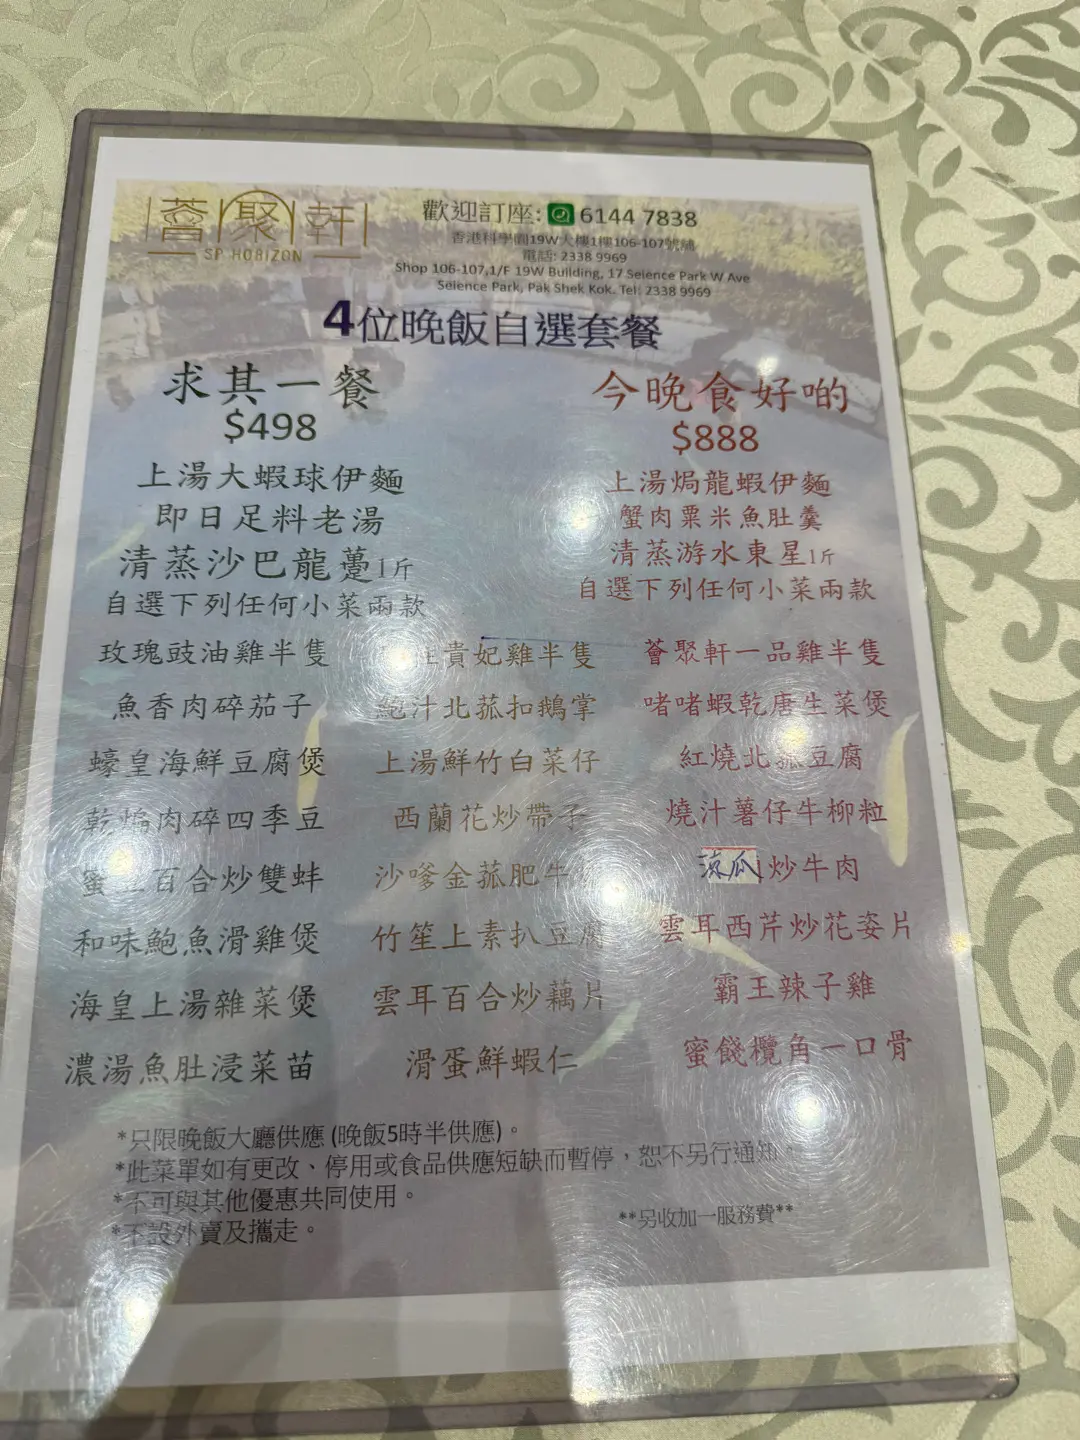 薈聚軒
SP HORIZON
歡迎訂座: 6144 7838
香港科學園19W大樓1樓106-107號舖
電話: 2338 9969
Shop 106-107,1/F 19W Building, 17 Seience Park W Ave
Seience Park, Pak Shek Kok. Tel: 2338 9969
4位晚飯自選套餐
求其一餐
$498
上湯大蝦球伊麵
即日足料老湯
清蒸沙巴龍躉1斤
自選下列任何小菜兩款
今晚食好啲
$888
上湯焗龍蝦伊麵
蟹肉粟米魚肚羹
清蒸游水東星1斤
自選下列任何小菜兩款
玫瑰豉油雞半隻
貴妃雞半隻
薈聚軒一品雞半隻
魚香肉碎茄子
鮑汁北菰扣鵝掌
啫啫蝦乾唐生菜煲
蠔皇海鮮豆腐煲
上湯鮮竹白菜仔
紅燒北菰豆腐
乾煸肉碎四季豆
西蘭花炒帶子
燒汁薯仔牛柳粒
百合炒雙蚌
沙嗲金菰肥牛
涼瓜炒牛肉
和味鮑魚滑雞煲
竹笙上素扒豆腐
雲耳西芹炒花姿片
海皇上湯雜菜煲
雲耳百合炒藕片
霸王辣子雞
濃湯魚肚浸菜苗
滑蛋鮮蝦仁
蜜餞欖角一口骨
*只限晚飯大廳供應 (晚飯5時半供應)。
*此菜單如有更改、停用或食品供應短缺而暫停，恕不另行通知。
*不可與其他優惠共同使用。
*不設外賣及攜走。
**另收加一服務費**